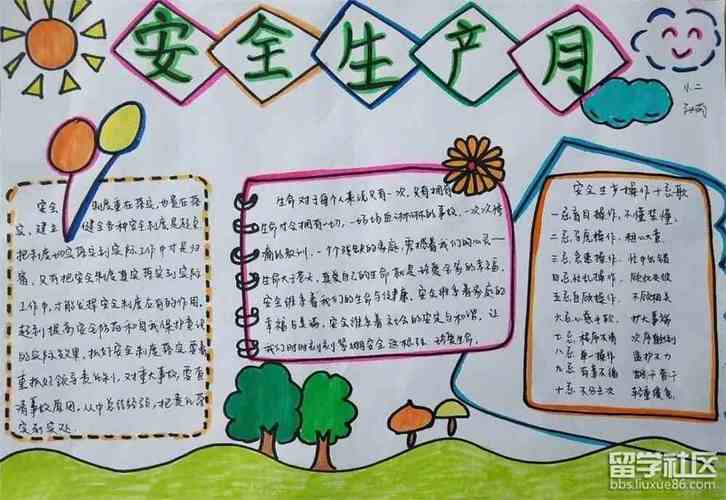 安全生产月
小二
安全 制度重在落实,也贵在落
实。建立 健全各种安全制度是起点
把制度切实落实到实际工作中才是归
宿,只有把安全制度真实落实到实际
工作中,才能发挥安全制度应有的作用,
起到提高安全防范和自我保护意识
的实际效果,抓好安全制度落实需要
重抓好领导责任制,对重大事故,要查
清事故原因,从中总结经验,把责任落
实到实处。
生命对于每个人来说只有一次,只有拥有
生命才会拥有一切,一场场血淋淋的事故,一次次惨
痛的教训,一个个残缺的家庭,旁擦着我们的心灵——
生命大于天,珍爱自己的生命就是珍爱全家的幸福,
安全维系着我们的生命与健康,安全维系着家庭的
幸福与美满,安全维系着社会的安定与和谐,让
我们时时刻刻紧绷安全这根弦,珍爱生命。
安全生产操作十忌歌
一忌盲目操作,不懂装懂。
二忌马虎操作,粗心大意。
三忌急速操作,忙中出错
四忌忙乱操作,顾此失彼
五忌自顾操作,不顾相关
六忌心慈手软,扩大事端
七忌程序不清 次序颠倒
八忌单一操作 监护不力
九忌有章不循 胡子眉毛
十忌不分主次 轻重缓急
留学社区
bbs.liuxue86.com